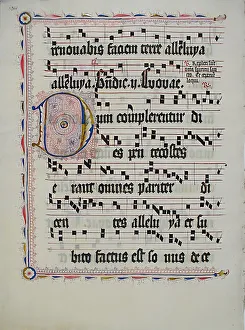 renovabis faciem terre alleluya
alleluya. p̄s. Benedic .ij. Evovae.
Dum complerentur di
es pen tecostes
e rant omnes pariter di
cen tes allelu ya et su
bito factus est so nus de ce